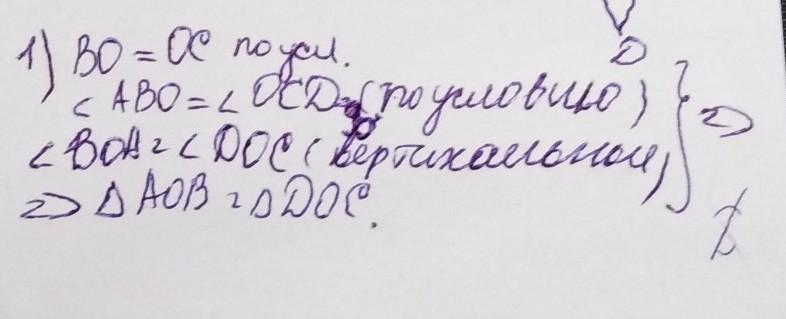 D
1) BO = OC по усл.
∠ABO = ∠OCD (по условию)
∠BOA = ∠DOC (вертикальной)
=>
=> ΔAOB = ΔDOC.